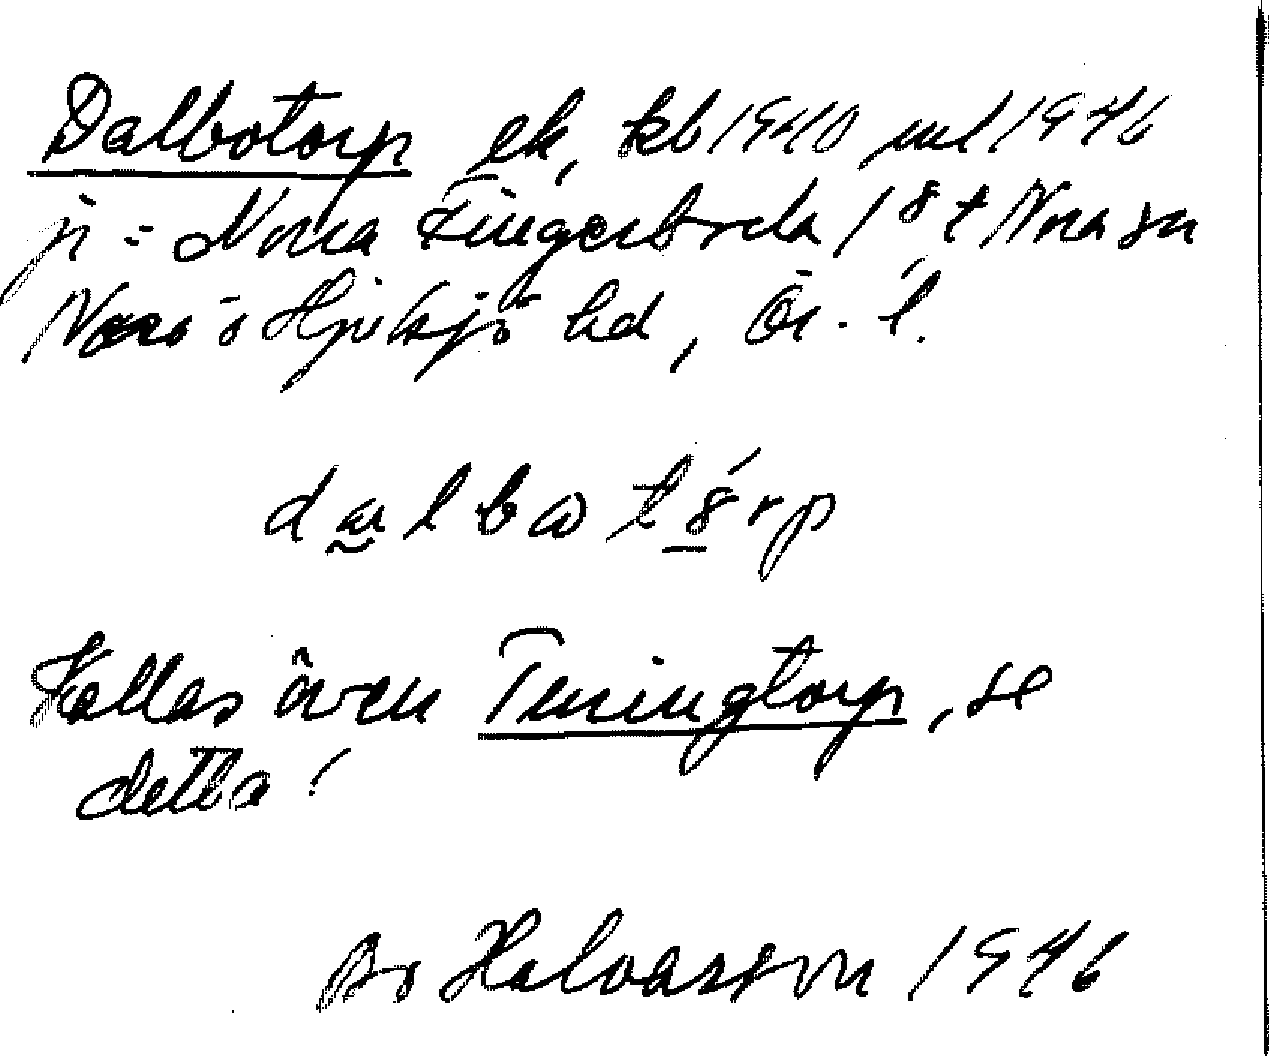 Dalbotorp ek, kb 1940 jul 1946
ji = Norra Fingerboda 1/8 t Nora sn
Nora o Hjulsjö hd, Ör. l.
Kallas även Turingtorp, se
detta!
Bo Halvarsson 1946